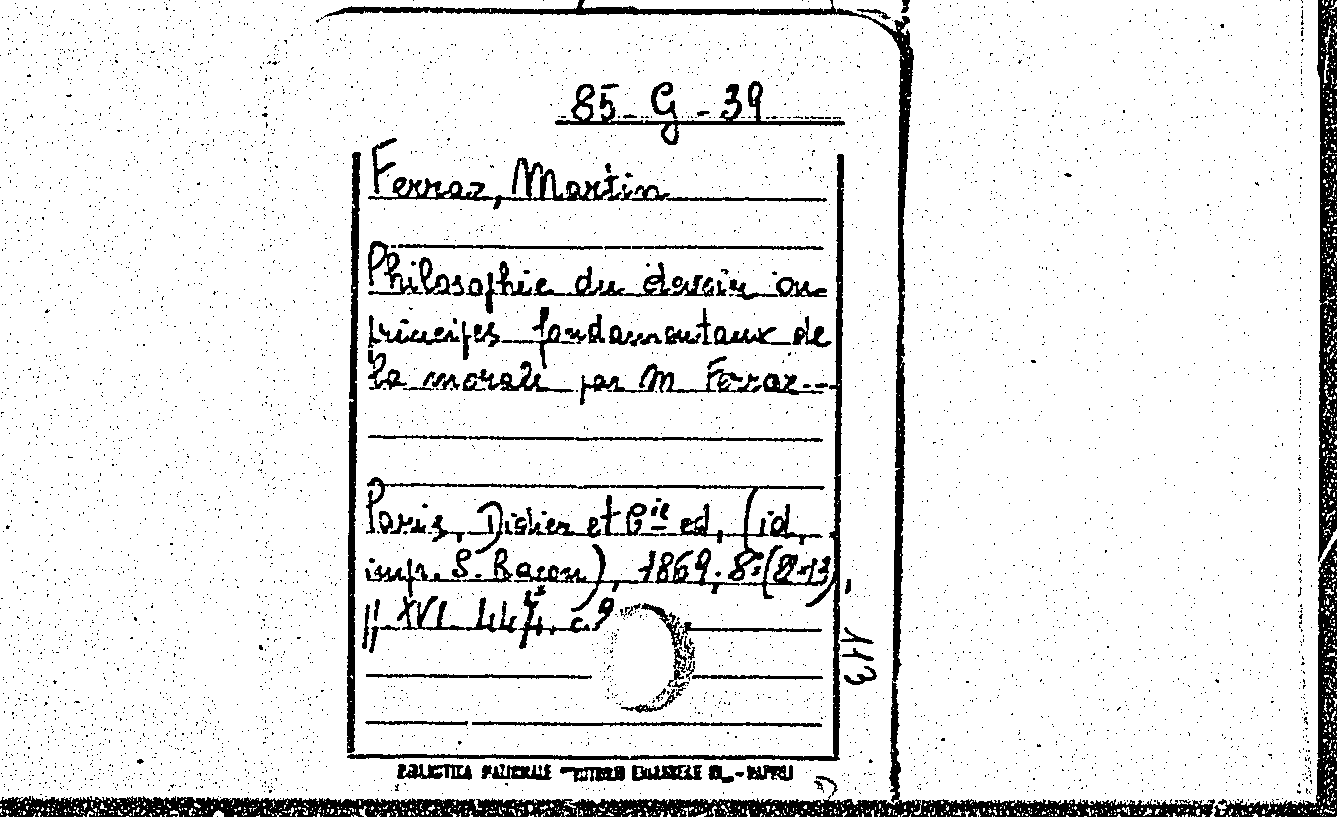 85-G-39
Ferraz, Martin
Philosophie du devoir ou
principes fondamentaux de
la morale par M Ferraz---
Paris, Didier et Cie ed, (id.,
impr. S. Racon), 1869, 8º(8º-13),
pp. XVI 447. c.9
113
BIBLIOTECA NAZIONALE "VITTORIO EMANUELE III" - NAPOLI